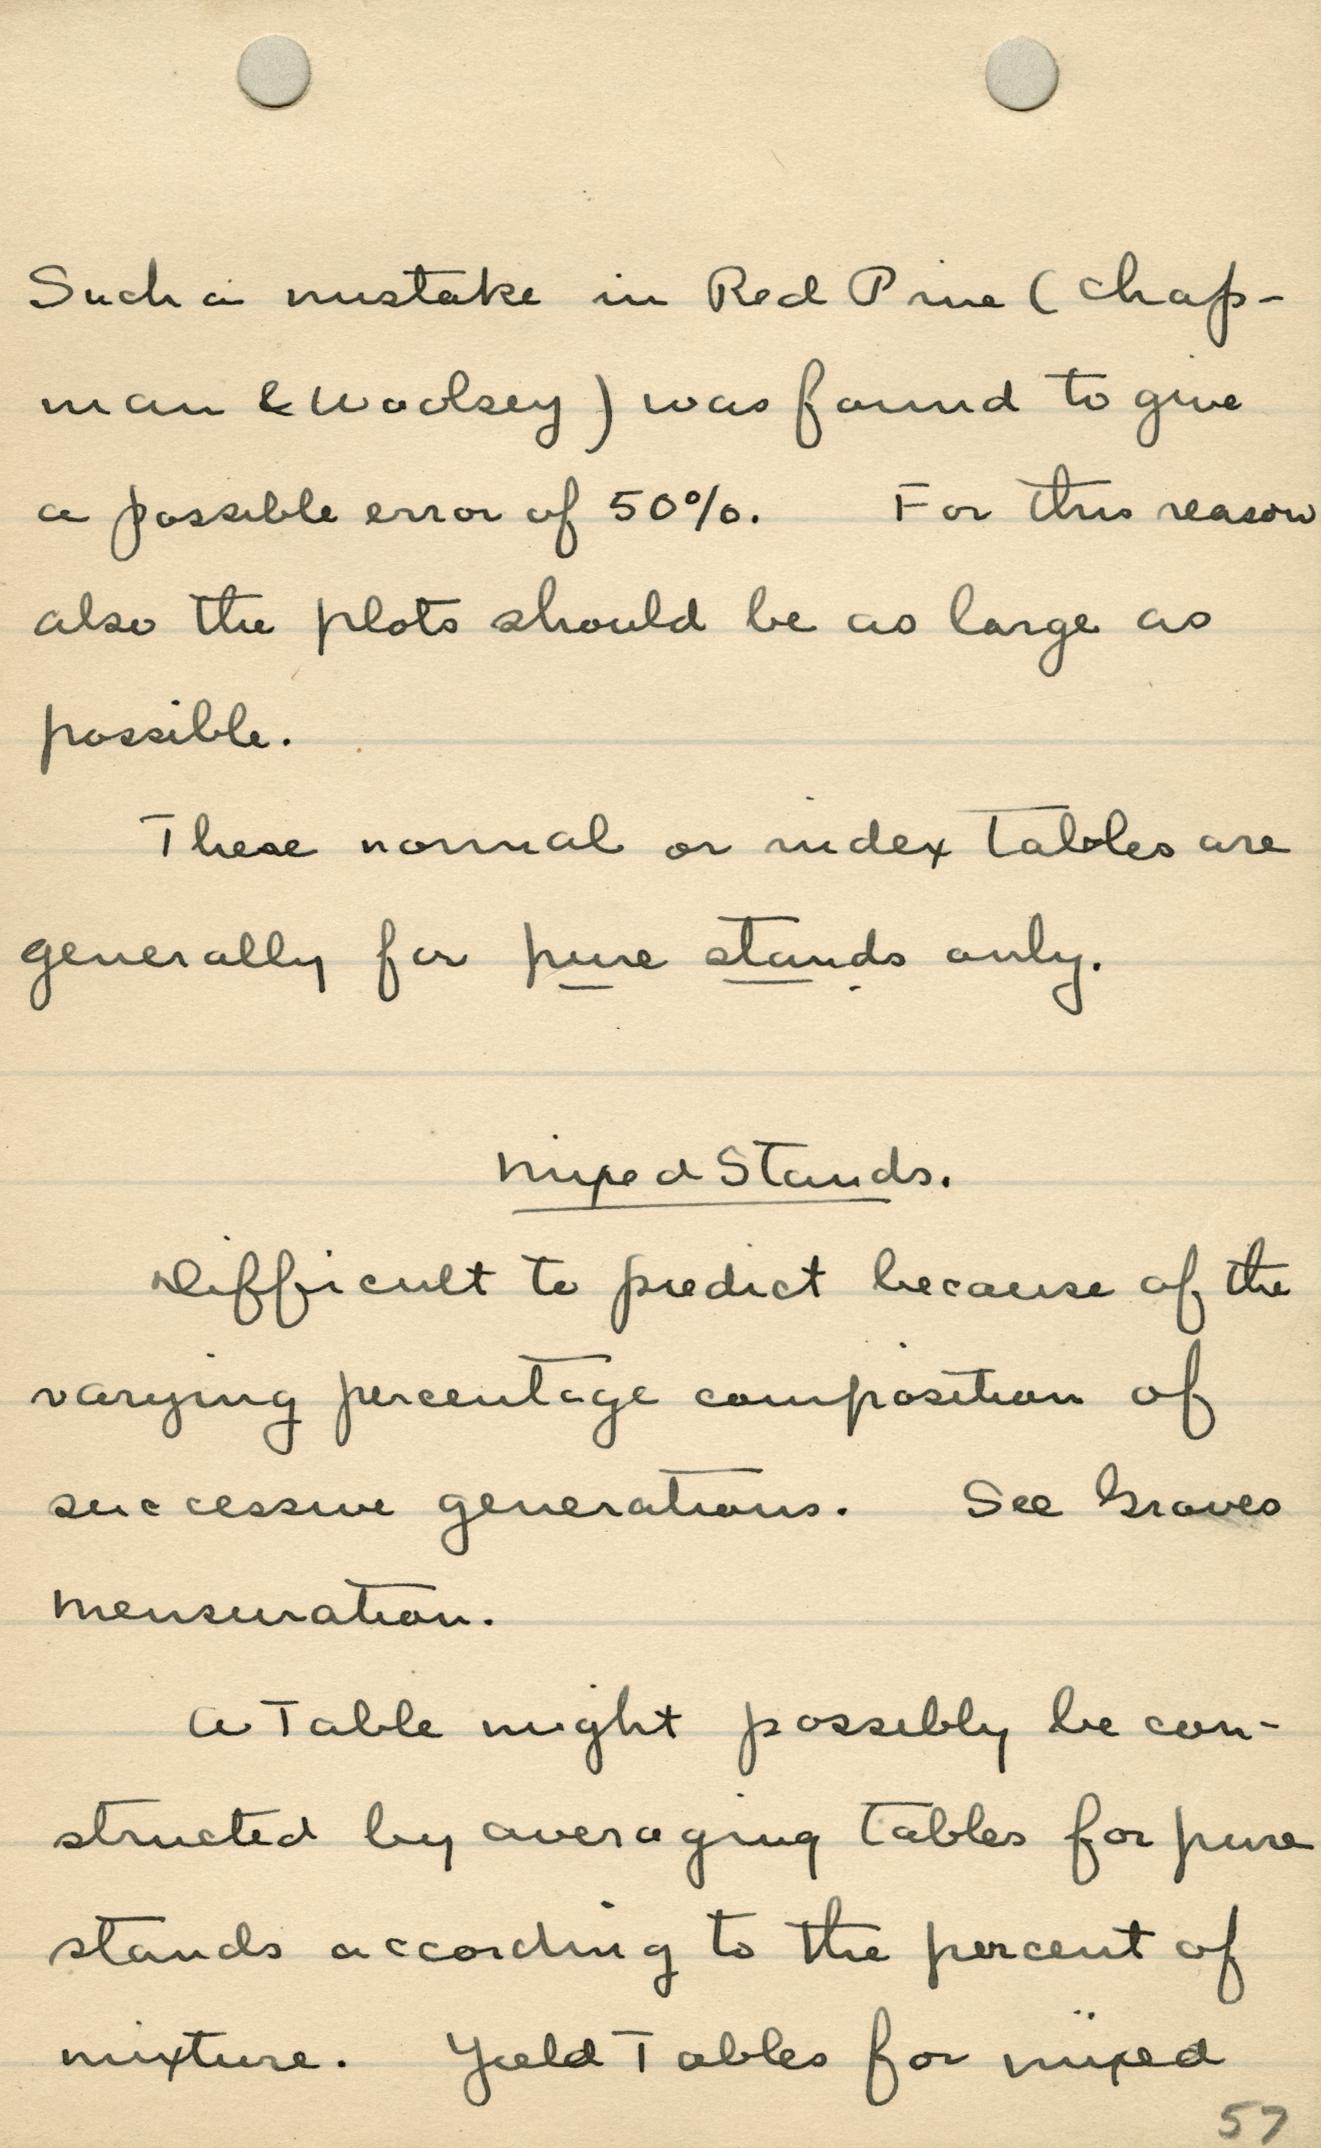 Such a mistake in Red Pine (Chap-
man & Woolsey) was found to give
a possible error of 50%. For this reason
also the plots should be as large as
possible.
These normal or index tables are
generally for pure stands only.
Mixed Stands.
Difficult to predict because of the
varying percentage composition of
successive generations. See Graves
Mensuration.
A Table might possibly be con-
structed by averaging tables for pure
stands according to the percent of
mixture. Yield Tables for mixed
57